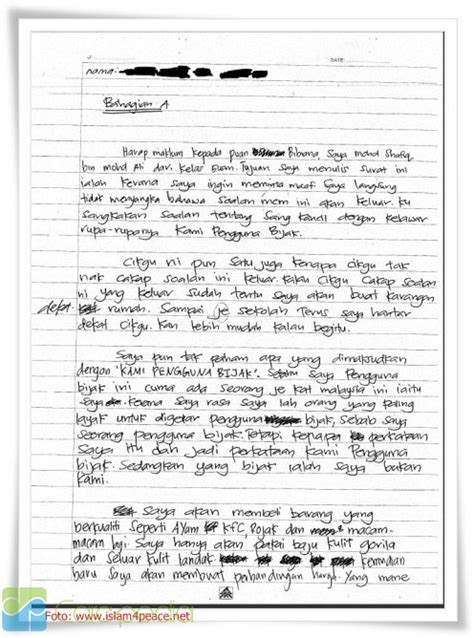 DATE
nama:
Bahagian A
Harap maklum kepada puan Bibiana, Saya mohd Shafiq
bin mohd Ali dari kelas 5um. Tujuan saya menulis surat ini
ialah kerana saya ingin meminta maaf. Saya langsung
tidak menyangka bahawa soalan mcm ini akan keluar. ku
sangkakan soalan tentang Sang kancil dengan kelawar
rupa-rupanya Kami Pengguna Bijak.
Cikgu ni pun satu juga kenapa cikgu tak
nak cakap soalan ini keluar. Kalau cikgu cakap soalan
ni yang keluar sudah tentu saya akan buat karangan
dekat rumah. Sampai je sekolah Terus saya hantar
dekat cikgu. Kan lebih mudah kalau begitu.
Saya pun tak paham apa yang dimaksudkan
dengan 'KAMI PENGGUNA BIJAK'. Pengguna
bijak ini cuma ada seorang je kat malaysia ini iaitu
saya. Kerana saya rasa saya lah orang yang paling
layak untuk digelar pengguna bijak, sebab saya
seorang pengguna bijak. Tetapi kenapa perkataan
Saya itu dah jadi perkataan Kami Pengguna
bijak. Sedangkan yang bijak ialah saya bukan
kami.
Saya akan membeli barang yang
berkualiti seperti Ayam KFC Rojak dan macam-
macam lagi. Saya hanya akan pakai baju kulit gorila
dan seluar kulit landak kemudian
baru saya akan membuat perbandingan harga. Yang mane
Foto: www.islam4peace.net